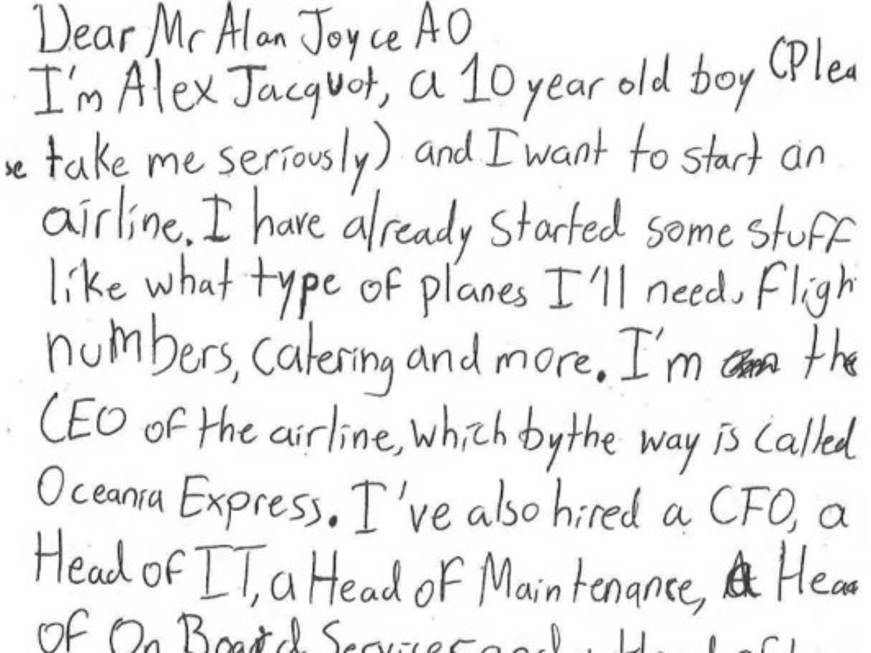 Dear Mr Alan Joyce AO
I'm Alex Jacquot, a 10 year old boy (Plea
se take me seriously) and I want to start an
airline. I have already started some stuff
like what type of planes I'll need, fligh
numbers, catering and more. I'm the
CEO of the airline, which by the way is called
Oceania Express. I've also hired a CFO, a
Head of IT, a Head of Maintenance, A Hea
Of On Board Services and